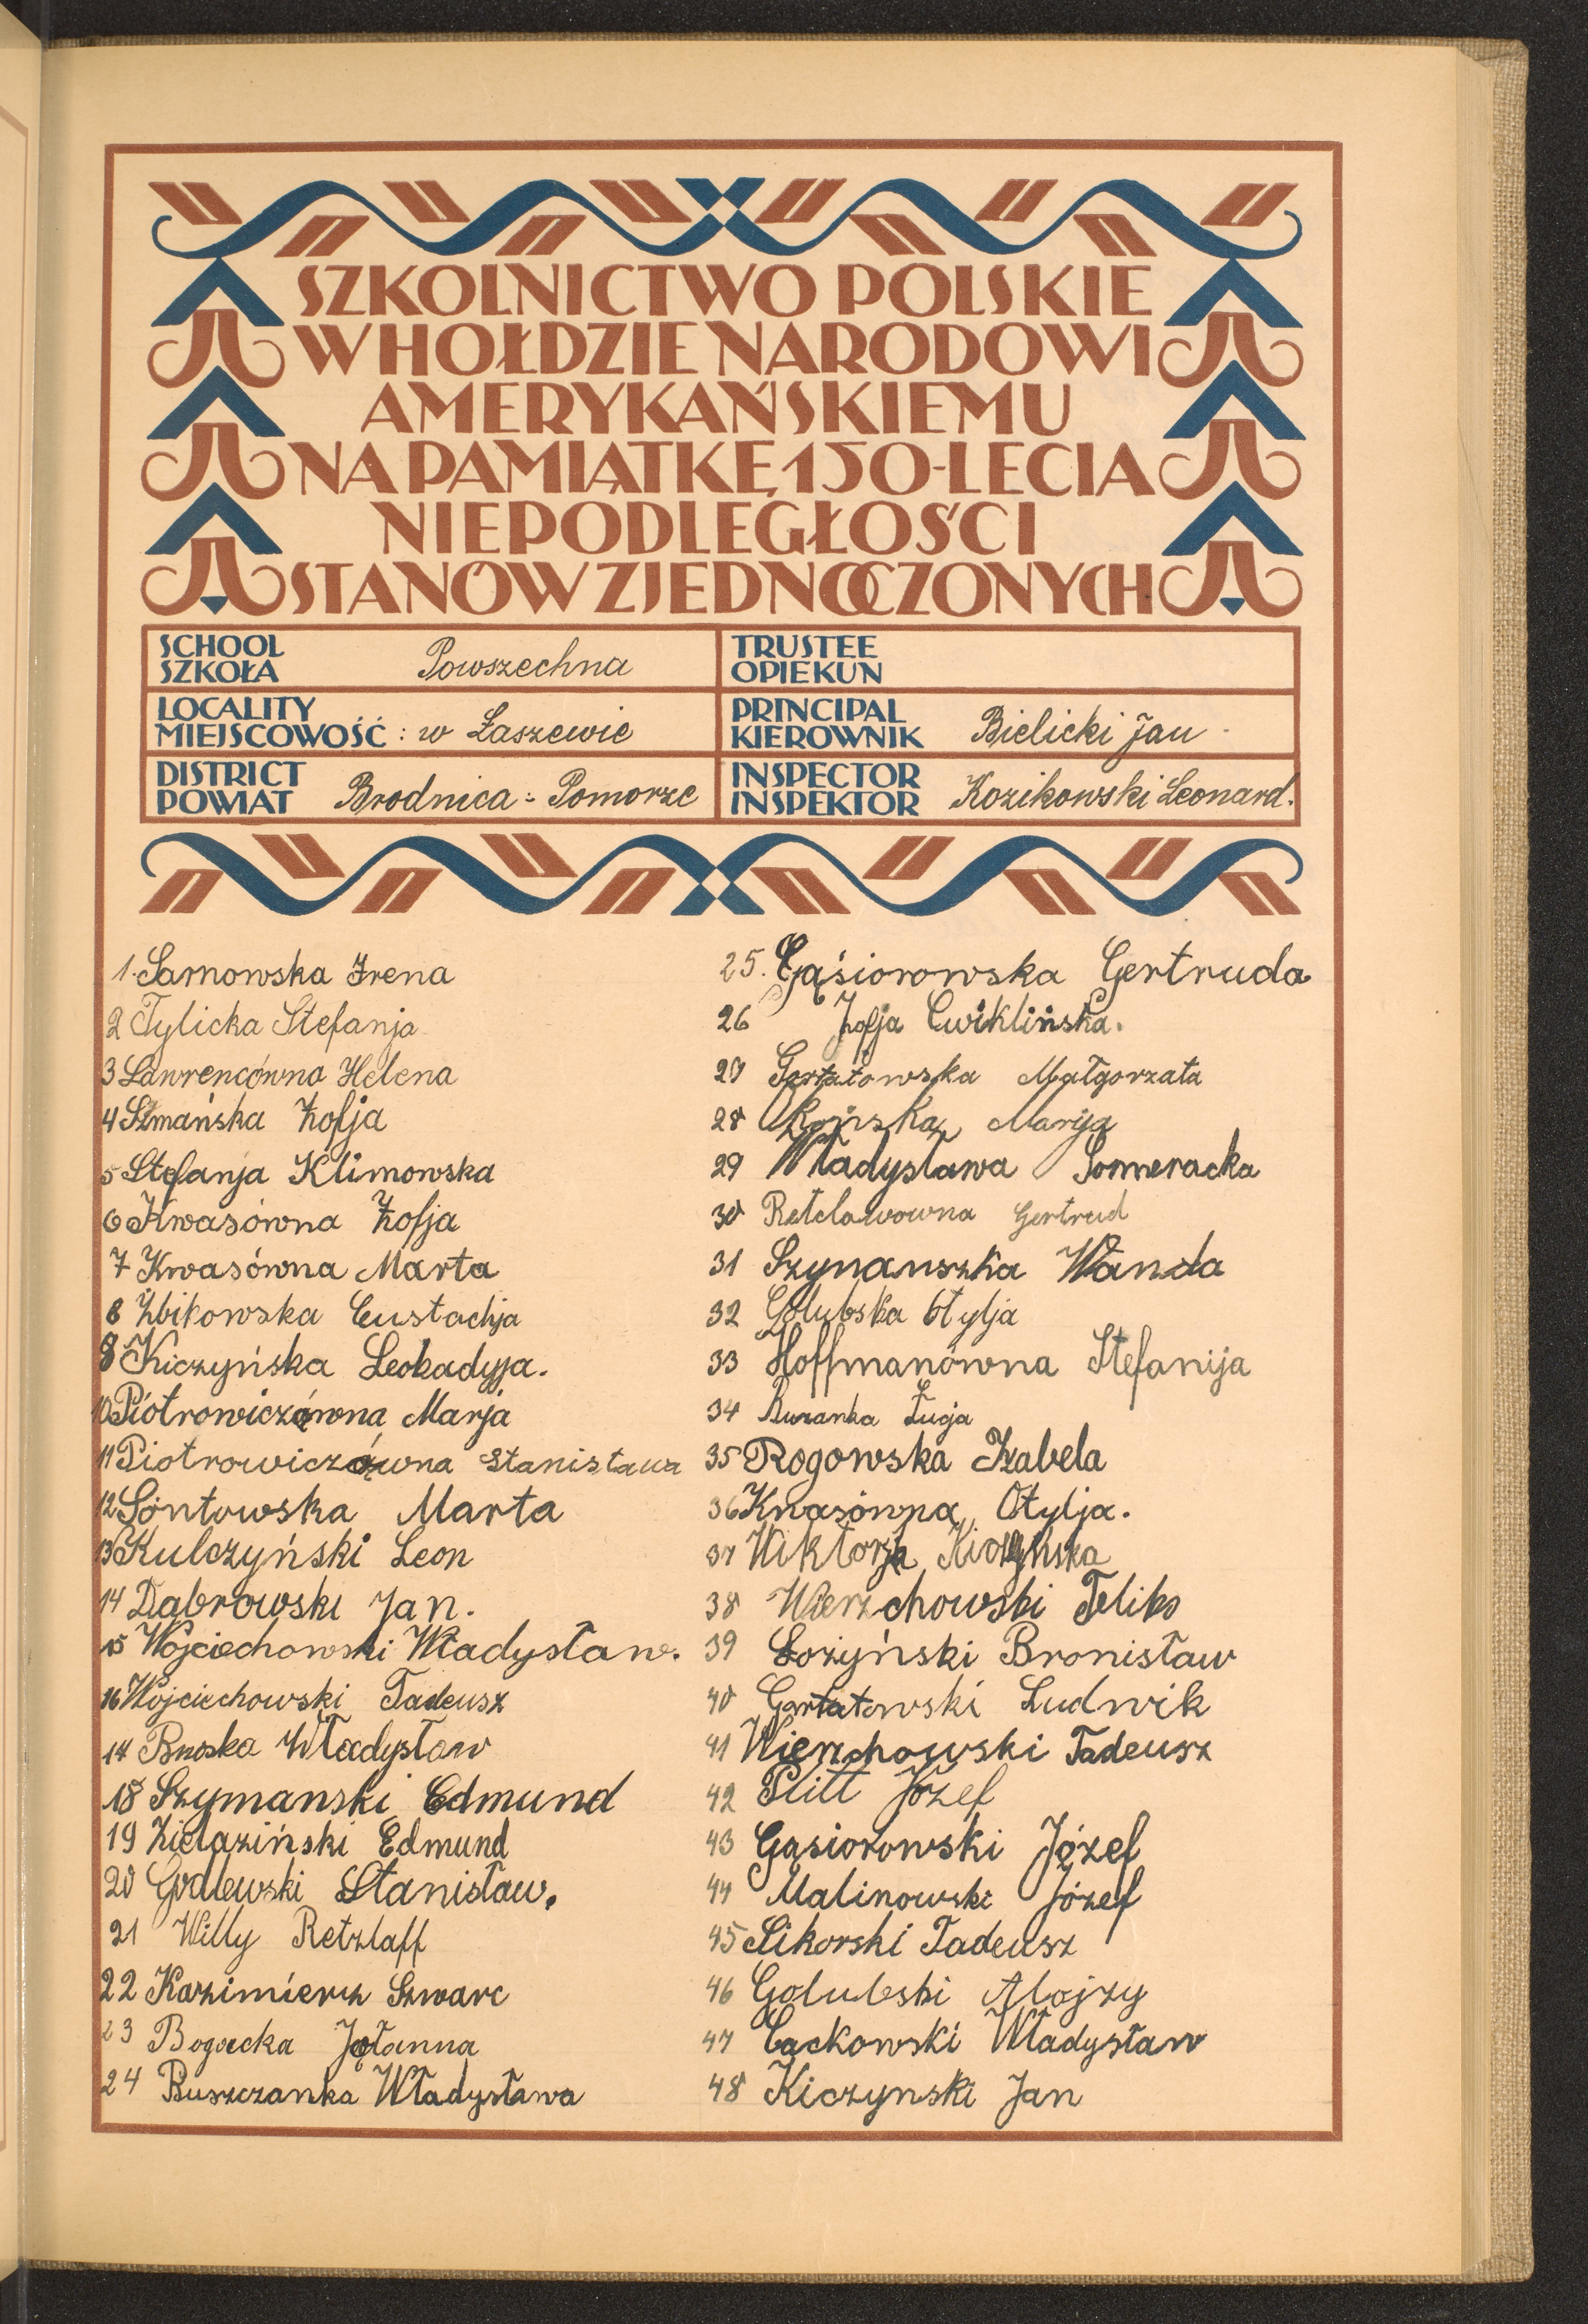 SZKOLNICTWO POLSKIE
W HOŁDZIE NARODOWI
AMERYKAŃSKIEMU
NA PAMIĄTKĘ 150-LECIA
NIEPODLEGŁOŚCI
STANÓW ZJEDNOCZONYCH
SCHOOL
SZKOŁA Powszechna
TRUSTEE
OPIEKUN
LOCALITY
MIEJSCOWOŚĆ : w Łaszewie
PRINCIPAL
KIEROWNIK Bielicki Jan
DISTRICT
POWIAT Brodnica - Pomorze
INSPECTOR
INSPEKTOR Kozikowski Leonard.
1. Sarnowska Irena
2 Tylicka Stefanja
3 Lawrencówna Helena
4 Szmańska Zofja
5 Stefanja Klimowska
6 Kwasówna Zofja
7 Kwasówna Marta
8 Żbikowska Eustachja
9 Kiczyńska Leokadyja.
10 Piotrowiczówna Marja
11 Piotrowiczówna Stanisława
12 Sontowska Marta
13 Kulczyński Leon
14 Dąbrowski Jan.
15 Wojciechowski Władysław.
16 Wojciechowski Tadeusz
17 Władysław
18 Szymanski Edmund
19 Zielaziński Edmund
20 Godlewski Stanisław.
21 Willy Retzlaff
22 Kazimierz Szwarc
23 Bogacka
24 Buszczanka Władysława
25. Gąsiorowska Gertruda
26 Zofja Cwiklińska.
27 Gortatowska Małgorzata
28 Marija
29 Władysława Pomeracka
30 Retclawowna Gertrud
31 Szymanszka Wanda
32 Golubska Otylja
33 Hoffmanówna Stefanija
34 Łucja
35 Rogowska Izabela
36 Kwasówna Otylja.
37 Wiktorja Kiczyńska
38 Wierzchowski Feliks
39 Łożyński Bronisław
40 Gortatowski Ludwik
41 Wierzchowski Tadeusz
42 Plitt Józef
43 Gąsiorowski Józef
44 Malinowski Józef
45 Sikorski Tadeusz
46 Golubski Alojzy
47 Cackowski Władysław
48 Kiczynski Jan